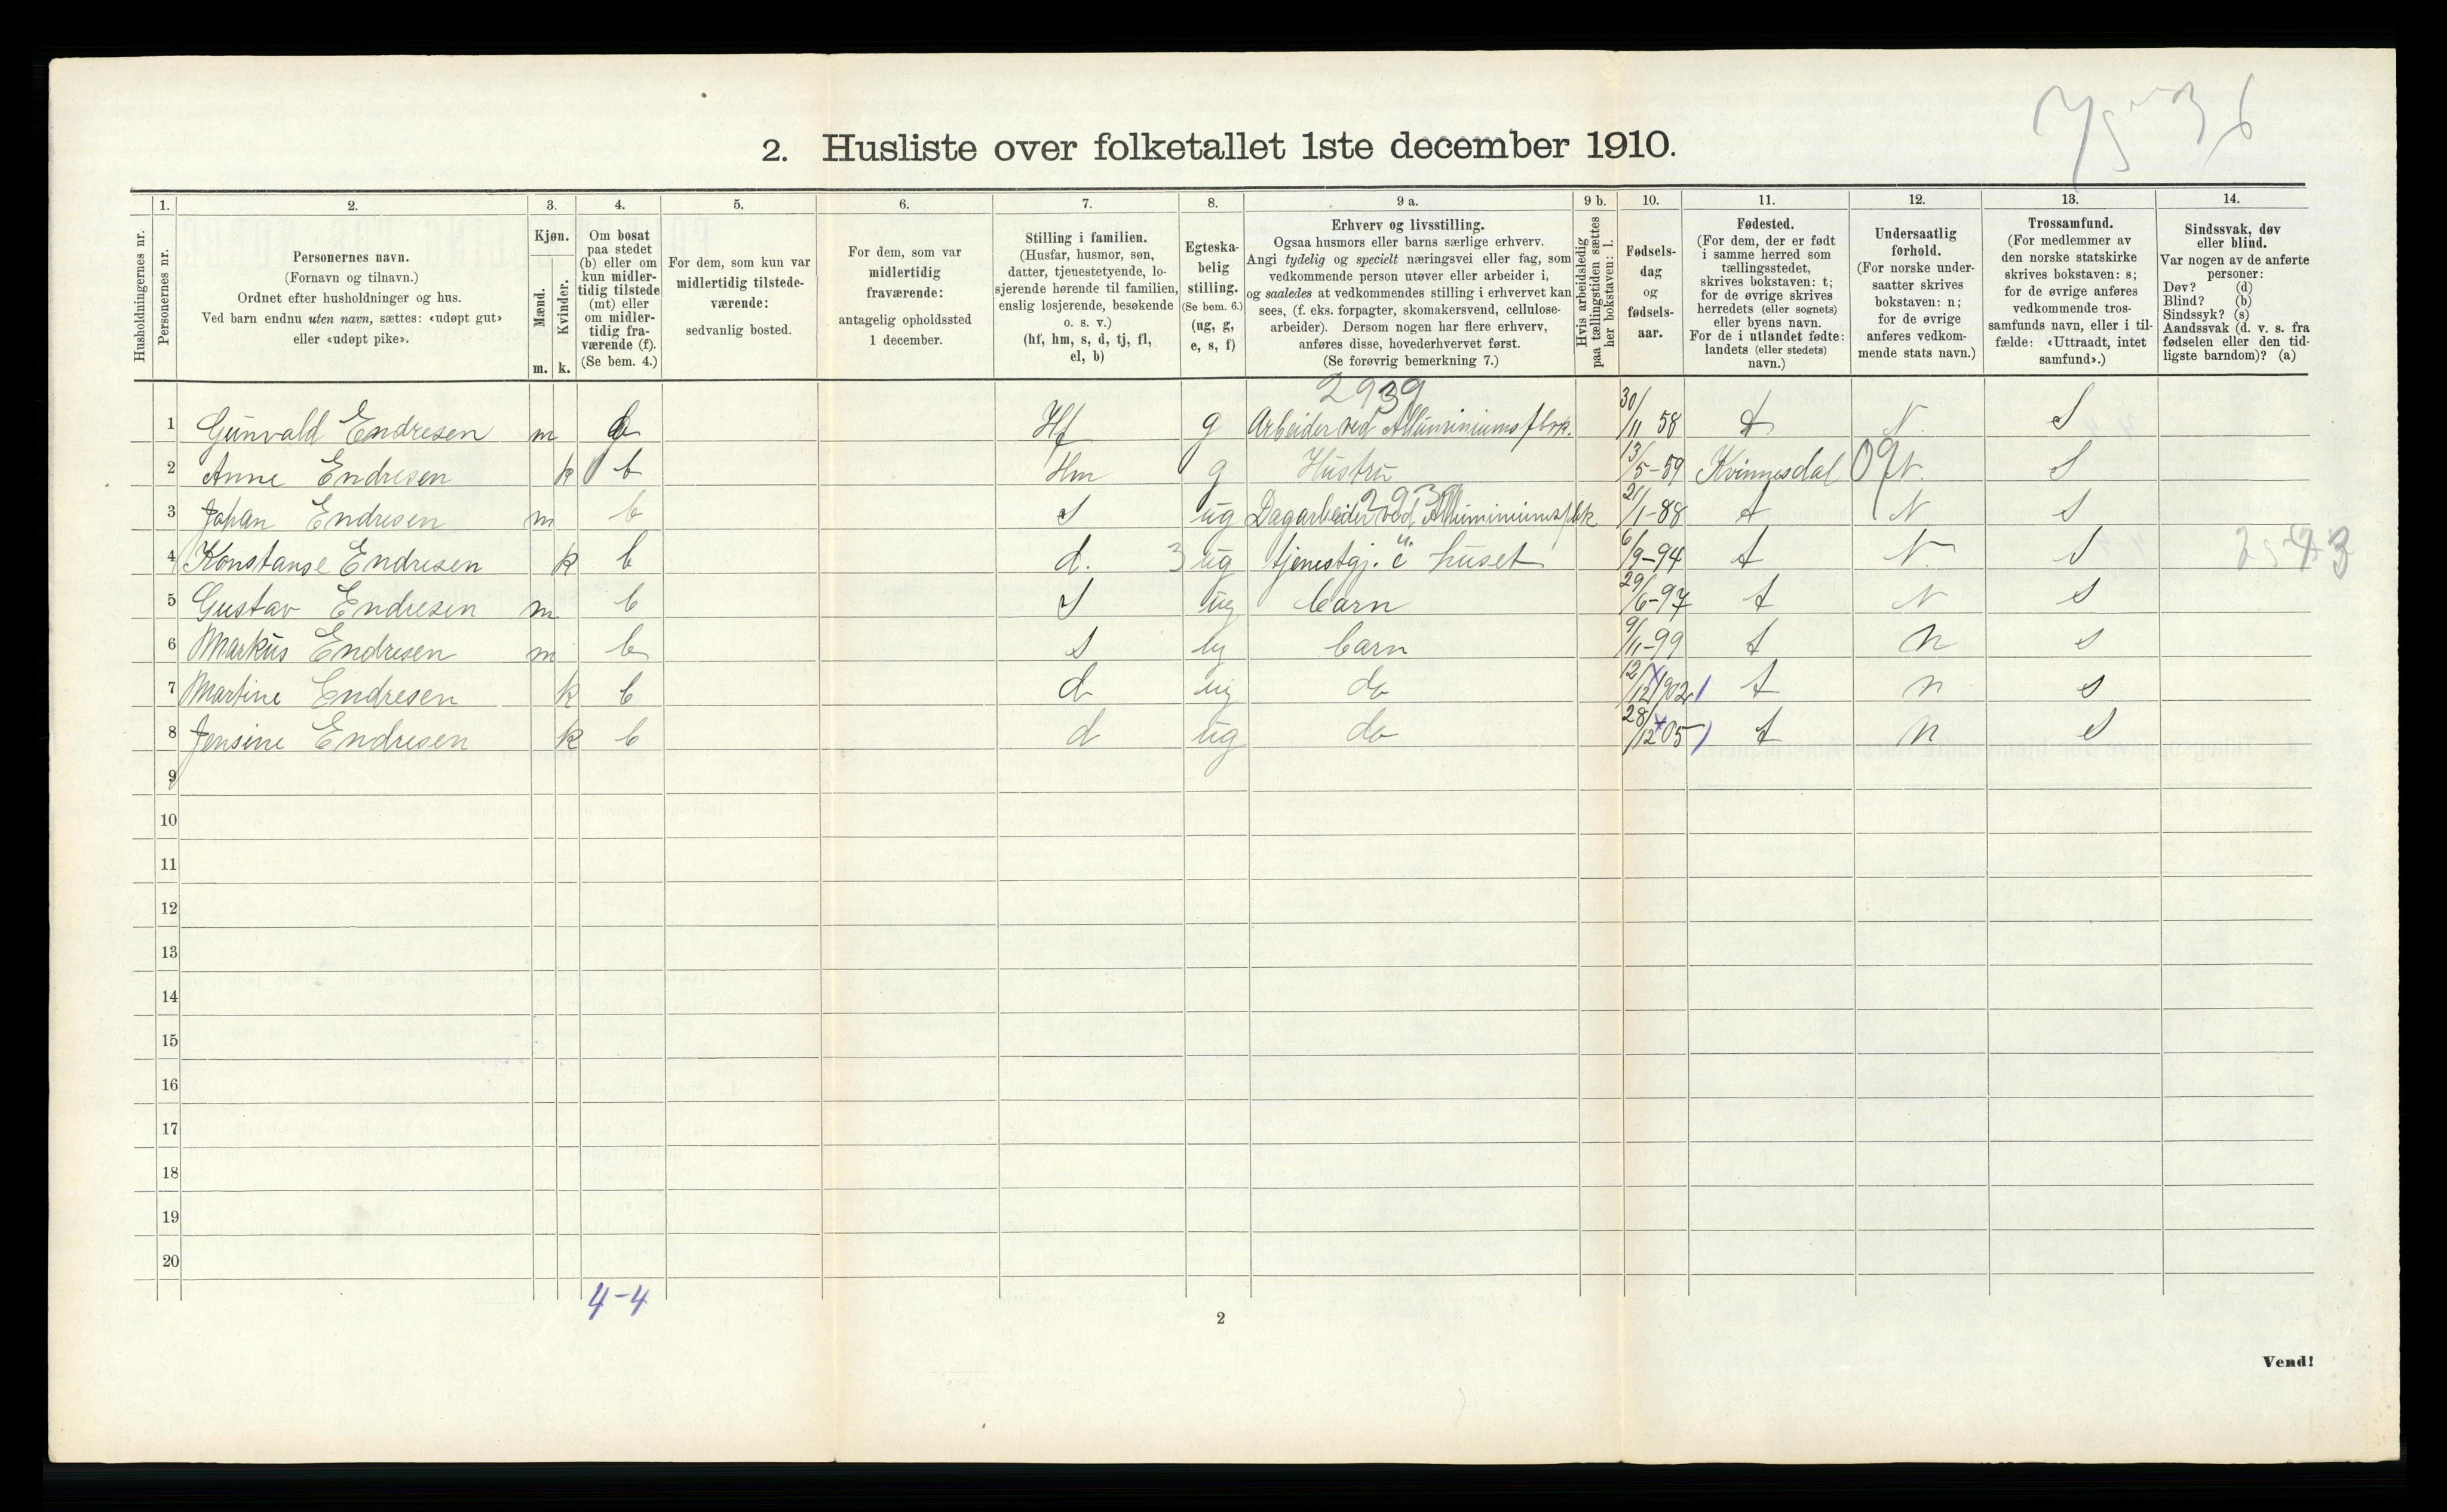 2. Husliste over folketallet 1ste december 1910.
Husholdningernes nr.
1. Personernes nr.
2. Personernes navn.
(Fornavn og tilnavn.)
Ordnet efter husholdninger og hus.
Ved barn endnu uten navn, sættes: «udøpt gut»
eller «udøpt pike».
3. Kjøn.
Mænd. Kvinder.
m. k.
4. Om bosat
paa stedet
(b) eller om
kun midler-
tidig tilstede
(mt) eller
om midler-
tidig fra-
værende (f).
(Se bem. 4.)
5. For dem, som kun var
midlertidig tilstede-
værende:
sedvanlig bosted.
6. For dem, som var
midlertidig
fraværende:
antagelig opholdssted
1 december.
7. Stilling i familien.
(Husfar, husmor, søn,
datter, tjenestetyende, lo-
sjerende hørende til familien,
enslig losjerende, besøkende
o. s. v.)
(hf, hm, s, d, tj, fl,
el, b)
8. Egteska-
belig
stilling.
(Se bem. 6.)
(ug, g,
e, s, f)
9 a. Erhverv og livsstilling.
Ogsaa husmors eller barns særlige erhverv.
Angi tydelig og specielt næringsvei eller fag, som
vedkommende person utøver eller arbeider i,
og saaledes at vedkommendes stilling i erhvervet kan
sees, (f. eks. forpagter, skomakersvend, cellulose-
arbeider). Dersom nogen har flere erhverv,
anføres disse, hovederhvervet først.
(Se forøvrig bemerkning 7.)
9 b. Hvis arbeidsledig
paa tællingstiden sættes
her bokstaven: l.
10. Fødsels-
dag
og
fødsels-
aar.
11. Fødested.
(For dem, der er født
i samme herred som
tællingsstedet,
skrives bokstaven: t;
for de øvrige skrives
herredets (eller sognets)
eller byens navn.
For de i utlandet fødte:
landets (eller stedets)
navn.)
12. Undersaatlig
forhold.
(For norske under-
saatter skrives
bokstaven: n;
for de øvrige
anføres vedkom-
mende stats navn.)
13. Trossamfund.
(For medlemmer av
den norske statskirke
skrives bokstaven: s;
for de øvrige anføres
vedkommende tros-
samfunds navn, eller i til-
fælde: «Uttraadt, intet
samfund».)
14. Sindssvak, døv
eller blind.
Var nogen av de anførte
personer:
Døv? (d)
Blind? (b)
Sindssyk? (s)
Aandssvak (d. v. s. fra
fødselen eller den tid-
ligste barndom)? (a)
2939
1 Gunvald Endresen m b Hf g Arbeider ved Alluminiumsfbrk. 30/11 58 t N. S
2 Anne Endresen k b Hm g Hustru 13/5-59 Kvinnesdal 09 N. S
2939
3 Johan Endresen m b S ug Dagarbeider ved Alluminiumsfbk 21/1-88 t N S
4 Konstanse Endresen k b d. 3 ug tjenestgj. i huset 6/9-94 t N. S
5 Gustav Endresen m b S ug barn 29/6-97 t N S
6 Markus Endresen m b s ug barn 9/11-99 t n s
7 Martine Endresen k b d ug do 12/12 1902 t n s
8 Jensine Endresen k b d ug do 28/12 05 t n s
9
10
11
12
13
14
15
16
17
18
19
20
4-4
2
Vend!